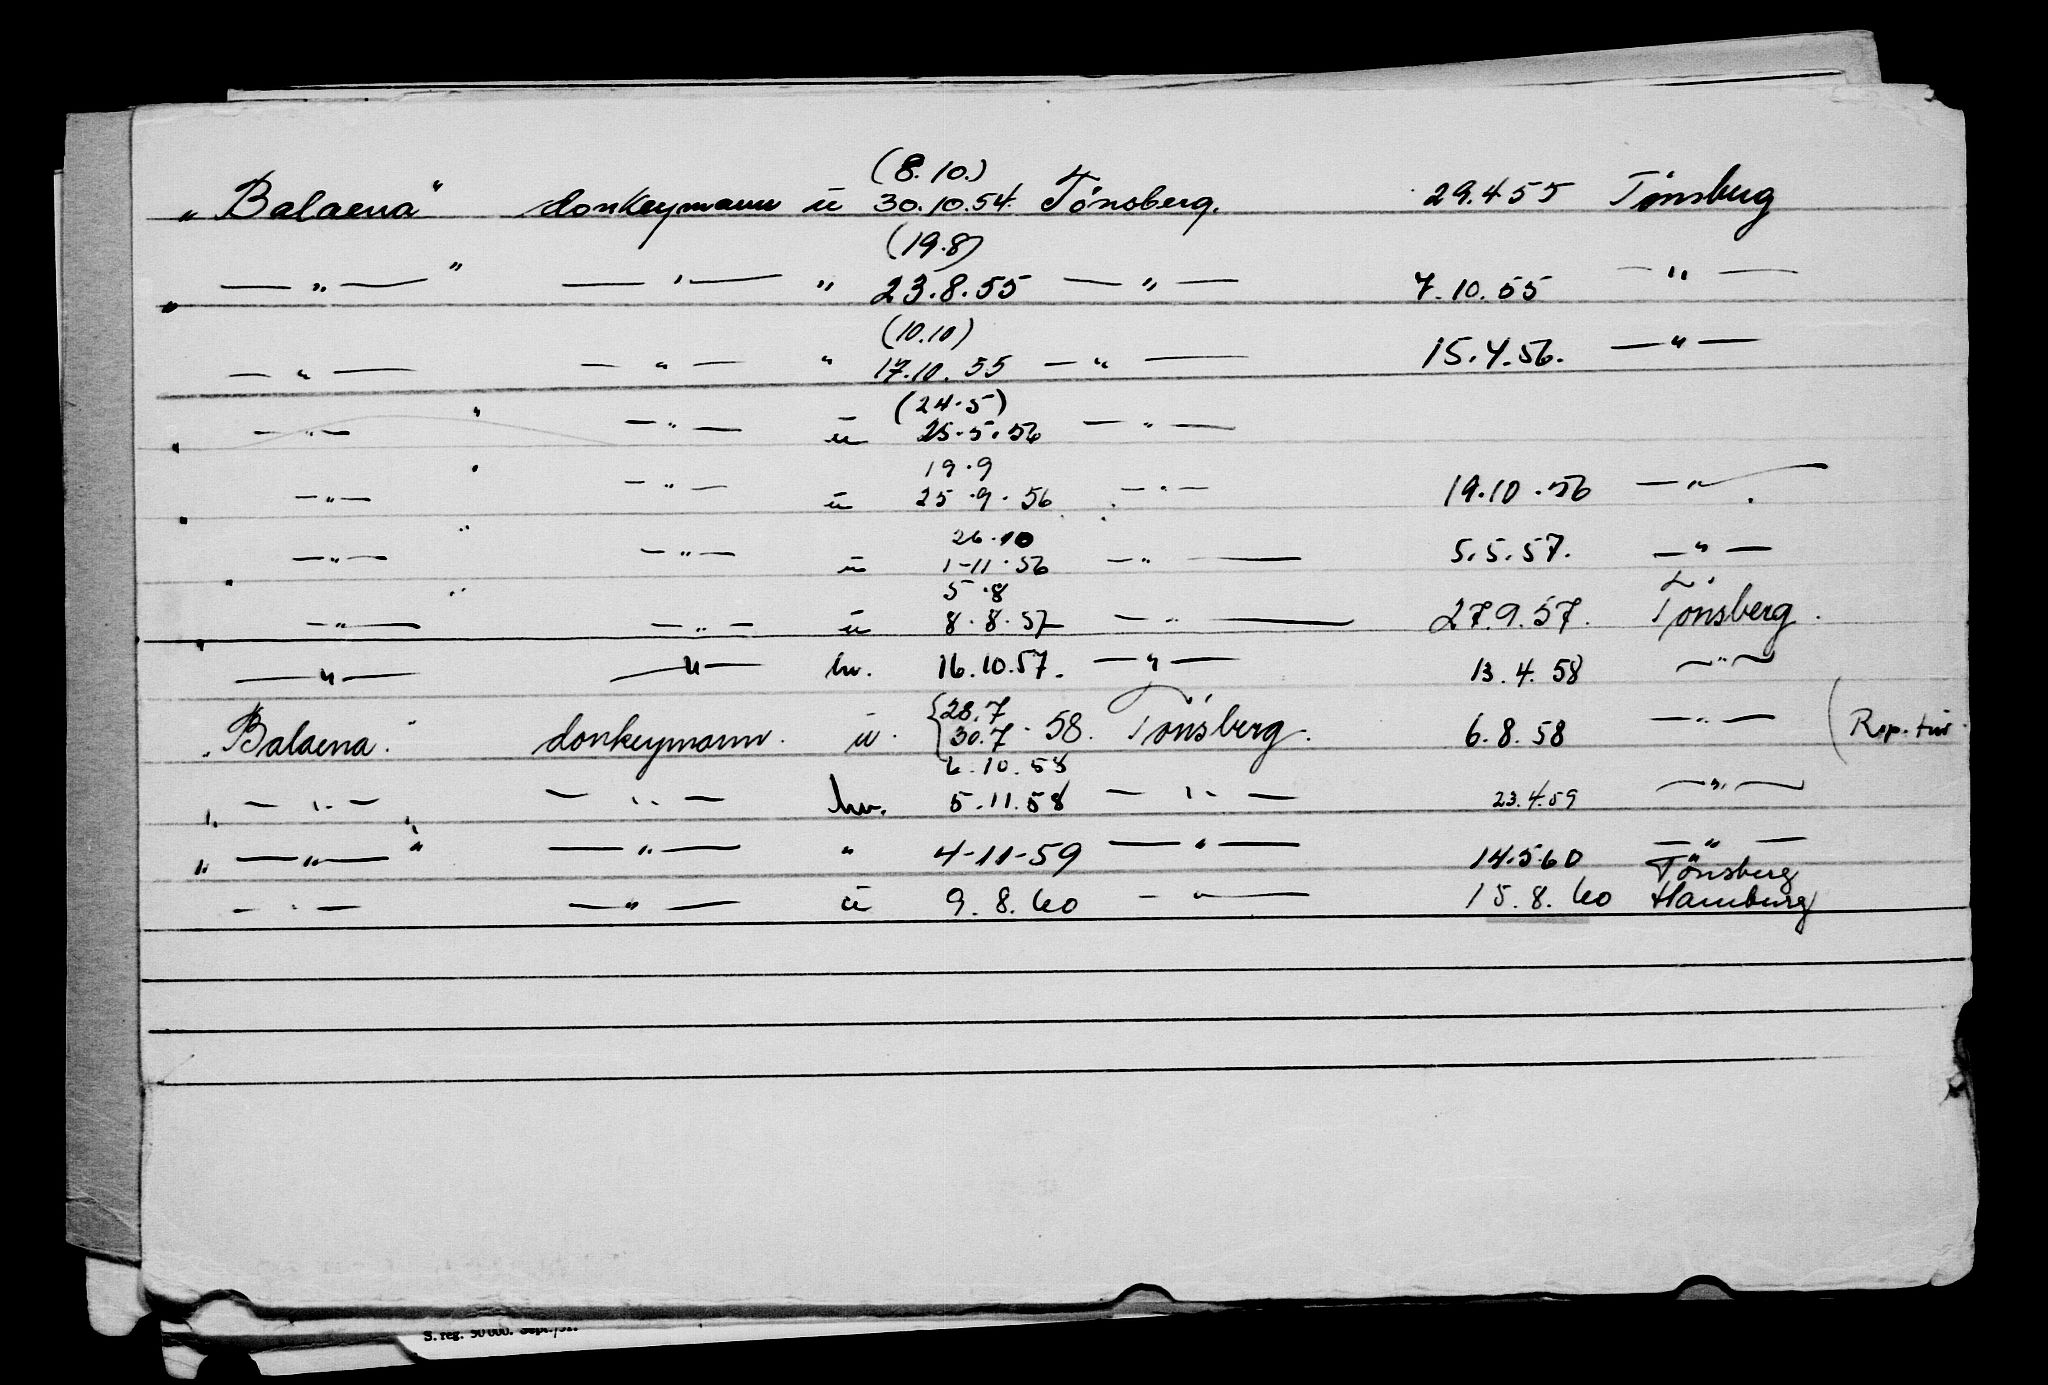 (8.10.)
„Balaena" donkeymann ū 30.10.54. Tönsberg. 29.4.55 Tönsberg
(19.8)
„ — „ — " — " — " 23.8.55 — „ — 7.10.55 — " —
(10.10)
— " — — " — " 17.10.55 — " — 15.4.56. — " —
(24.5)
„ — " — " — " — ū 25.5.56 — " —
19.9
„ — " — " — " — ū 25.9.56 — " — 19.10.56 — " —
26.10
„ — " — " — " — ū 1-11.56 — " — 5.5.57. — " —
5.8
„ — " — " — " — ū 8.8.57 — " — 27.9.57. Tönsberg.
— " — — " — hv. 16.10.57. — " — 13.4.58 — " —
„Balaena." donkeymann. ū. {28.7 30.7.58. Tönsberg. 6.8.58 — " — (Rep. tur.
6.10.58
„ — " — " — " — hv. 5.11.58 — " — 23.4.59 — " —
„ — " — " — " — " 4-11-59 — " — 14.5.60 — " —
Tönsberg
— " — — " — ū 9.8.60 — " — 15.8.60 Hamburg
S. reg. 50 000. Sept./51.